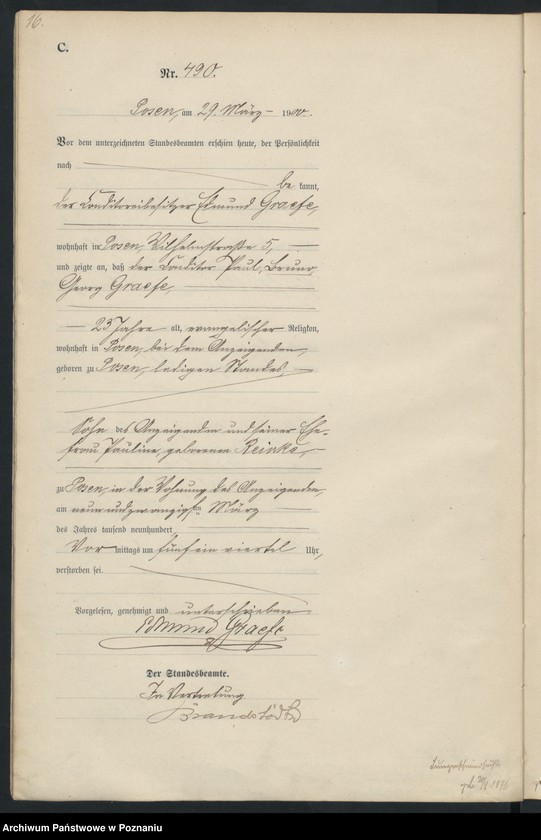 16.
C.
Nr. 490.
Posen, am 29. März 1900.
Vor dem unterzeichneten Standesbeamten erschien heute, der Persönlichkeit
nach
be kannt,
der Conditoreibesitzer Edmund Graefe,
wohnhaft in Posen, Wilhelmstraße 5,
und zeigte an, daß der Conditor Paul, Bruno,
Georg Graefe,
23 Jahre alt, evangelischer Religion,
wohnhaft in Posen, bei dem Anzeigenden,
geboren zu Posen, ledigen Standes,
Sohn des Anzeigenden und seiner Ehe-
frau Pauline, geborenen Reinke,
zu Posen, in der Wohnung des Anzeigenden,
am neunundzwanzigsten März
des Jahres tausend neunhundert
Vor mittags um fünf ein viertel Uhr,
verstorben sei.
Vorgelesen, genehmigt und unterschrieben
Edmund Graefe
Der Standesbeamte.
In Vertretung
1876
Archiwum Państwowe w Poznaniu